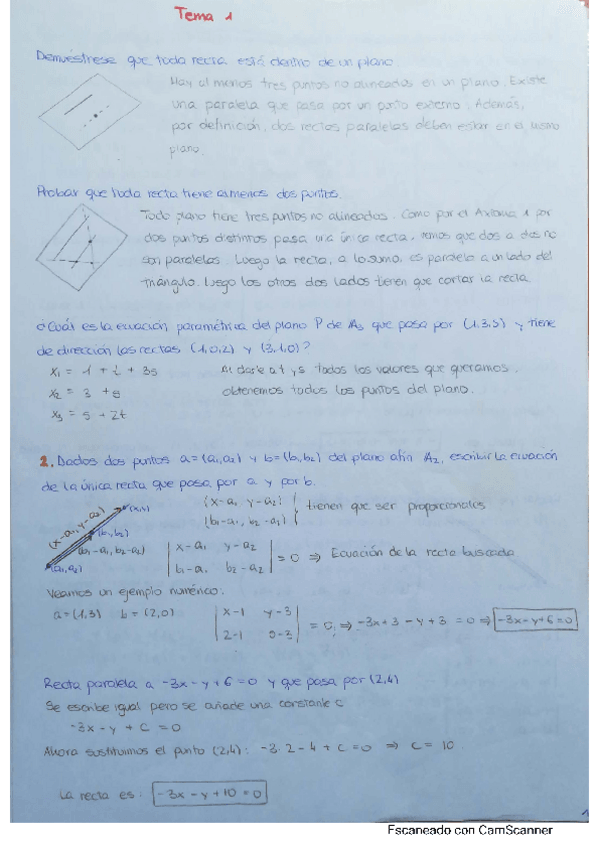 Tema 1
Demuéstrese que toda recta está dentro de un plano.
Hay al menos tres puntos no alineados en un plano. Existe
una paralela que pasa por un punto externo. Además,
por definición, dos rectas paralelas deben estar en el mismo
plano.
Probar que toda recta tiene al menos dos puntos.
Todo plano tiene tres puntos no alineados. Como por el Axioma 1 por
dos puntos distintos pasa una única recta, vemos que dos a dos no
son paralelas. Luego la recta, a lo sumo, es paralela a un lado del
triángulo. Luego los otros dos lados tienen que cortar la recta.
¿Cuál es la ecuación paramétrica del plano P de A₃ que pasa por (1,3,5) y tiene
de dirección las rectas (1,0,2) y (3,1,0)?
x₁ = 1 + t + 3s Al darle a t y s todos los valores que queramos,
x₂ = 3 + s obtenemos todos los puntos del plano.
x₃ = 5 + 2t
2. Dados dos puntos a=(a₁,a₂) y b=(b₁,b₂) del plano afín A₂, escribir la ecuación
de la única recta que pasa por a y por b.
(x-a₁, y-a₂) (x,y) (x-a₁ y-a₂) tienen que ser proporcionales
(b₁,b₂) (b₁-a₁, b₂-a₂)
(b₁-a₁, b₂-a₂) | x-a₁ y-a₂ |
(a₁,a₂) | b₁-a₁ b₂-a₂ | = 0 ⇒ Ecuación de la recta buscada
Veamos un ejemplo numérico:
a=(1,3) b=(2,0) | x-1 y-3 |
| 2-1 0-3 | = 0, ⇒ -3x+3 - y+3 = 0 ⇒ -3x-y+6=0
Recta paralela a -3x-y+6=0 y que pasa por (2,4)
Se escribe igual pero se añade una constante C
-3x - y + C = 0
Ahora sustituimos el punto (2,4): -3·2-4+C=0 ⇒ C= 10
La recta es: -3x - y + 10 = 0
1
Escaneado con CamScanner